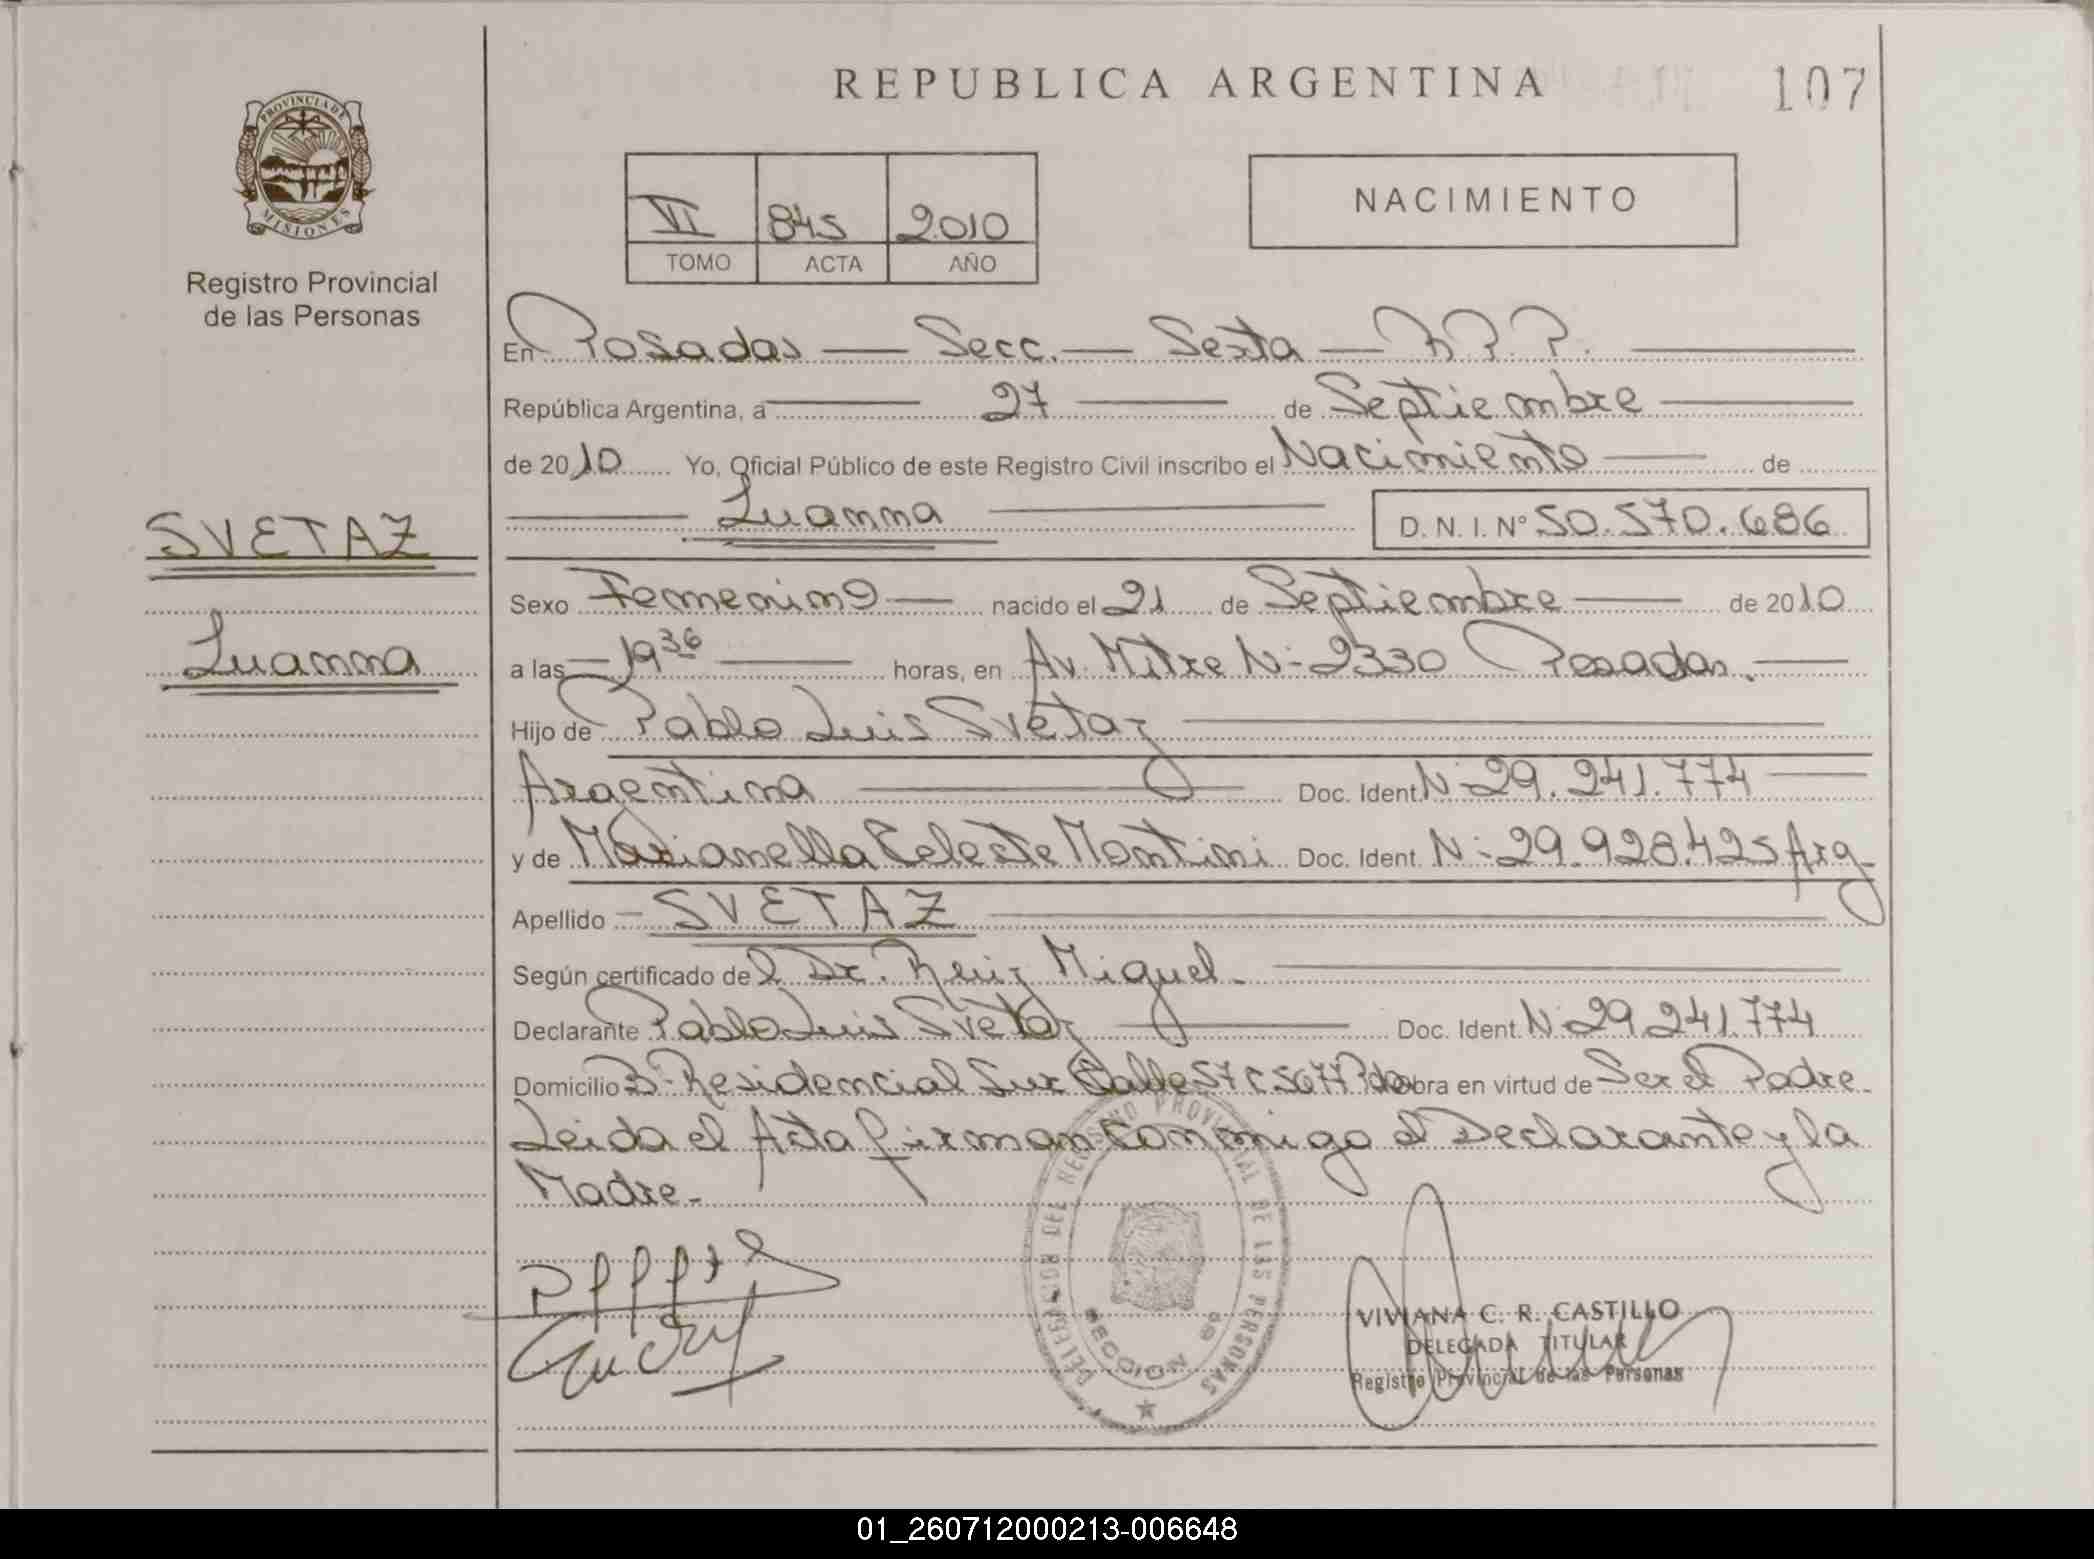 PROVINCIA DE
MISIONES
Registro Provincial
de las Personas
SVETAZ
Luanna
REPUBLICA ARGENTINA
107
VI 845 2010
TOMO ACTA AÑO
NACIMIENTO
En Posadas — Secc. — Sexta — R.P.P.
República Argentina, a 27 de Septiembre
de 2010 Yo, Oficial Público de este Registro Civil inscribo el Nacimiento de
Luanna D. N. I. N° 50.570.686
Sexo Femenino nacido el 21 de Septiembre de 2010
a las 19 36 horas, en Av. Mitre N- 2330 Posadas.
Hijo de Pablo Luis Svetaz
Argentina Doc. Ident. N- 29.241.774
y de Marianella Celeste Montini Doc. Ident. N- 29.928.425 Arg
Apellido SVETAZ
Según certificado del Dr. Ruiz Miguel
Declarante Pablo Luis Svetaz Doc. Ident. N- 29.241.774
Domicilio B- Residencial Sur Calle 57 C 5677 Pdas obra en virtud de Ser el Padre
Leida el Acta firman conmigo el Declarante y la
Madre.-
DELEGACION DEL REGISTRO PROVINCIAL DE LAS PERSONAS
SECCION 6º
VIVIANA C. R. CASTILLO
DELEGADA TITULAR
Registro Provincial de las Personas
01_260712000213-006648